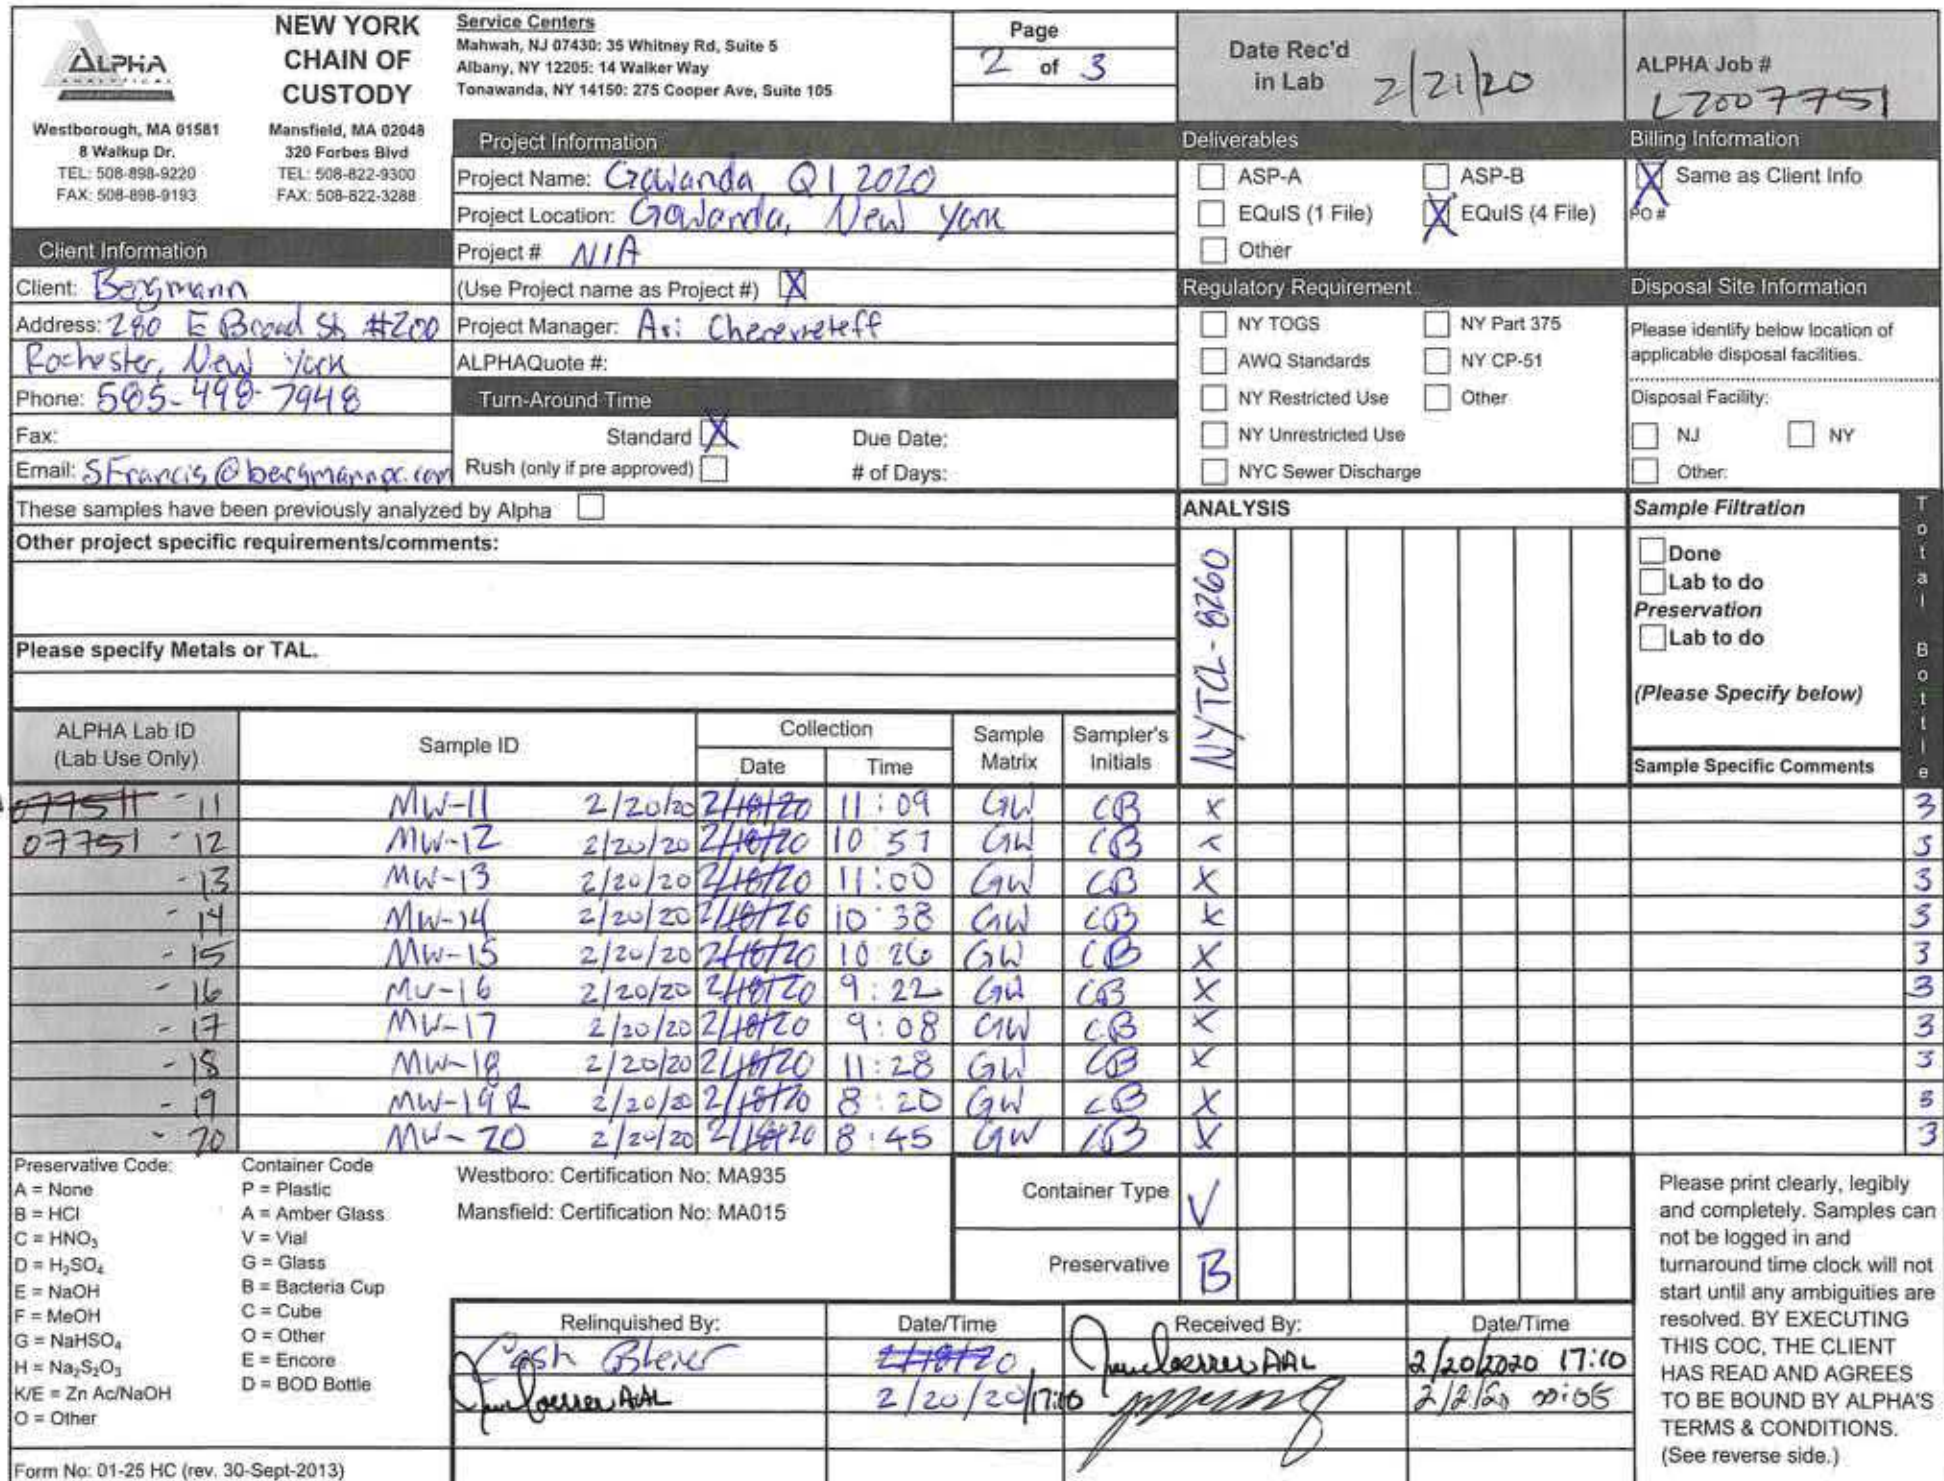 ALPHA
ANALYTICAL
NEW YORK
CHAIN OF
CUSTODY
Westborough, MA 01581
8 Walkup Dr.
TEL: 508-898-9220
FAX: 508-898-9193
Mansfield, MA 02048
320 Forbes Blvd
TEL: 508-822-9300
FAX: 508-822-3288
Service Centers
Mahwah, NJ 07430: 35 Whitney Rd, Suite 5
Albany, NY 12205: 14 Walker Way
Tonawanda, NY 14150: 275 Cooper Ave, Suite 105
Page
2 of 3
Date Rec'd
in Lab 2/21/20
ALPHA Job #
L2007751
Client Information
Client: Bergmann
Address: 280 E Broad St. #200
Rochester, New York
Phone: 585-498-7948
Fax:
Email: SFrancis@bergmannpc.com
Project Information
Project Name: Gowanda Q1 2020
Project Location: Gowanda, New York
Project # N/A
(Use Project name as Project #) X
Project Manager: Ari
ALPHAQuote #:
Turn-Around Time
Standard X Due Date:
Rush (only if pre approved) # of Days:
Deliverables
ASP-A ASP-B
EQuIS (1 File) X EQuIS (4 File)
Other
Billing Information
X Same as Client Info
PO #
Regulatory Requirement
NY TOGS NY Part 375
AWQ Standards NY CP-51
NY Restricted Use Other
NY Unrestricted Use
NYC Sewer Discharge
Disposal Site Information
Please identify below location of
applicable disposal facilities.
Disposal Facility:
NJ NY
Other:
These samples have been previously analyzed by Alpha
Other project specific requirements/comments:
Please specify Metals or TAL.
ANALYSIS
NYTCL-8260
Sample Filtration
Done
Lab to do
Preservation
Lab to do
(Please Specify below)
Sample Specific Comments
Total Bottle
ALPHA Lab ID
(Lab Use Only)
Sample ID
Collection
Date Time
Sample
Matrix
Sampler's
Initials
-11 MW-11 2/20/20 2/18/20 11:09 GW CB X 3
07751 -12 MW-12 2/20/20 2/18/20 10:57 GW CB X 3
-13 MW-13 2/20/20 2/18/20 11:00 GW CB X 3
-14 MW-14 2/20/20 2/18/20 10:38 GW CB X 3
-15 MW-15 2/20/20 2/18/20 10:26 GW CB X 3
-16 MW-16 2/20/20 2/18/20 9:22 GW CB X 3
-17 MW-17 2/20/20 2/18/20 9:08 GW CB X 3
-18 MW-18 2/20/20 2/18/20 11:28 GW CB X 3
-19 MW-19R 2/20/20 2/18/20 8:20 GW CB X 3
-20 MW-20 2/20/20 2/18/20 8:45 GW CB X 3
Preservative Code:
A = None
B = HCl
C = HNO₃
D = H₂SO₄
E = NaOH
F = MeOH
G = NaHSO₄
H = Na₂S₂O₃
K/E = Zn Ac/NaOH
O = Other
Container Code
P = Plastic
A = Amber Glass
V = Vial
G = Glass
B = Bacteria Cup
C = Cube
O = Other
E = Encore
D = BOD Bottle
Westboro: Certification No: MA935
Mansfield: Certification No: MA015
Container Type V
Preservative B
Relinquished By: Date/Time Received By: Date/Time
2/18/20 AAL 2/20/2020 17:10
AAL 2/20/20 17:10
Please print clearly, legibly
and completely. Samples can
not be logged in and
turnaround time clock will not
start until any ambiguities are
resolved. BY EXECUTING
THIS COC, THE CLIENT
HAS READ AND AGREES
TO BE BOUND BY ALPHA'S
TERMS & CONDITIONS.
(See reverse side.)
Form No: 01-25 HC (rev. 30-Sept-2013)